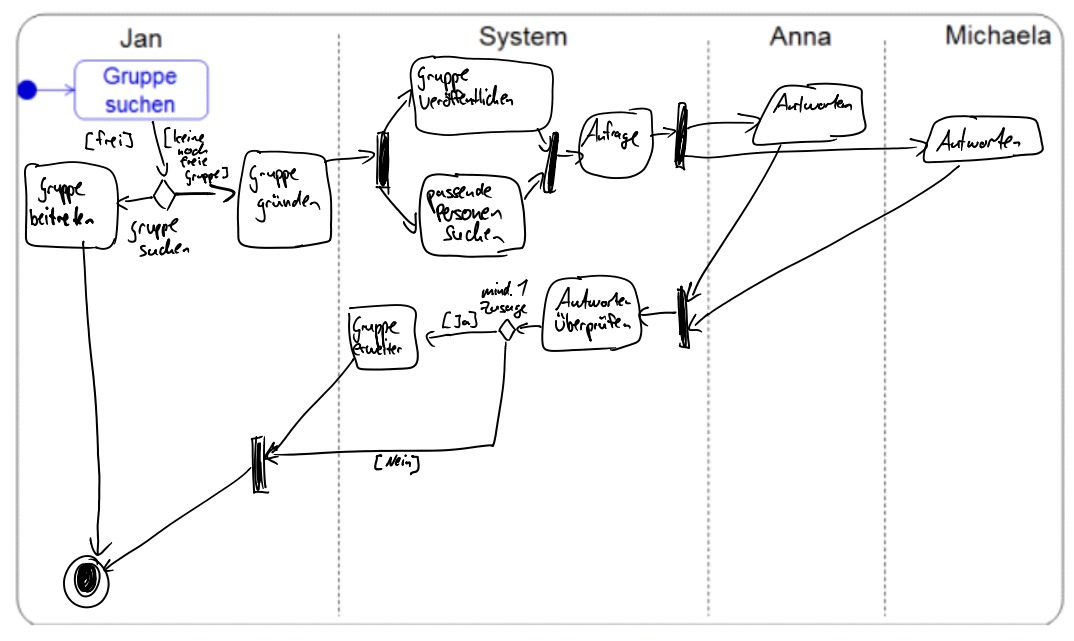 Jan
System
Anna
Michaela
Gruppe
suchen
[frei]
[keine
noch
freie
gruppe]
Gruppe
beitreten
gruppe
suchen
Gruppe
gründen
Gruppe
veröffentlichen
passende
Personen
suchen
Anfrage
Antworten
Antworten
Antworten
überprüfen
mind. 1
Zusage
[Ja]
Gruppe
erweiter
[Nein]